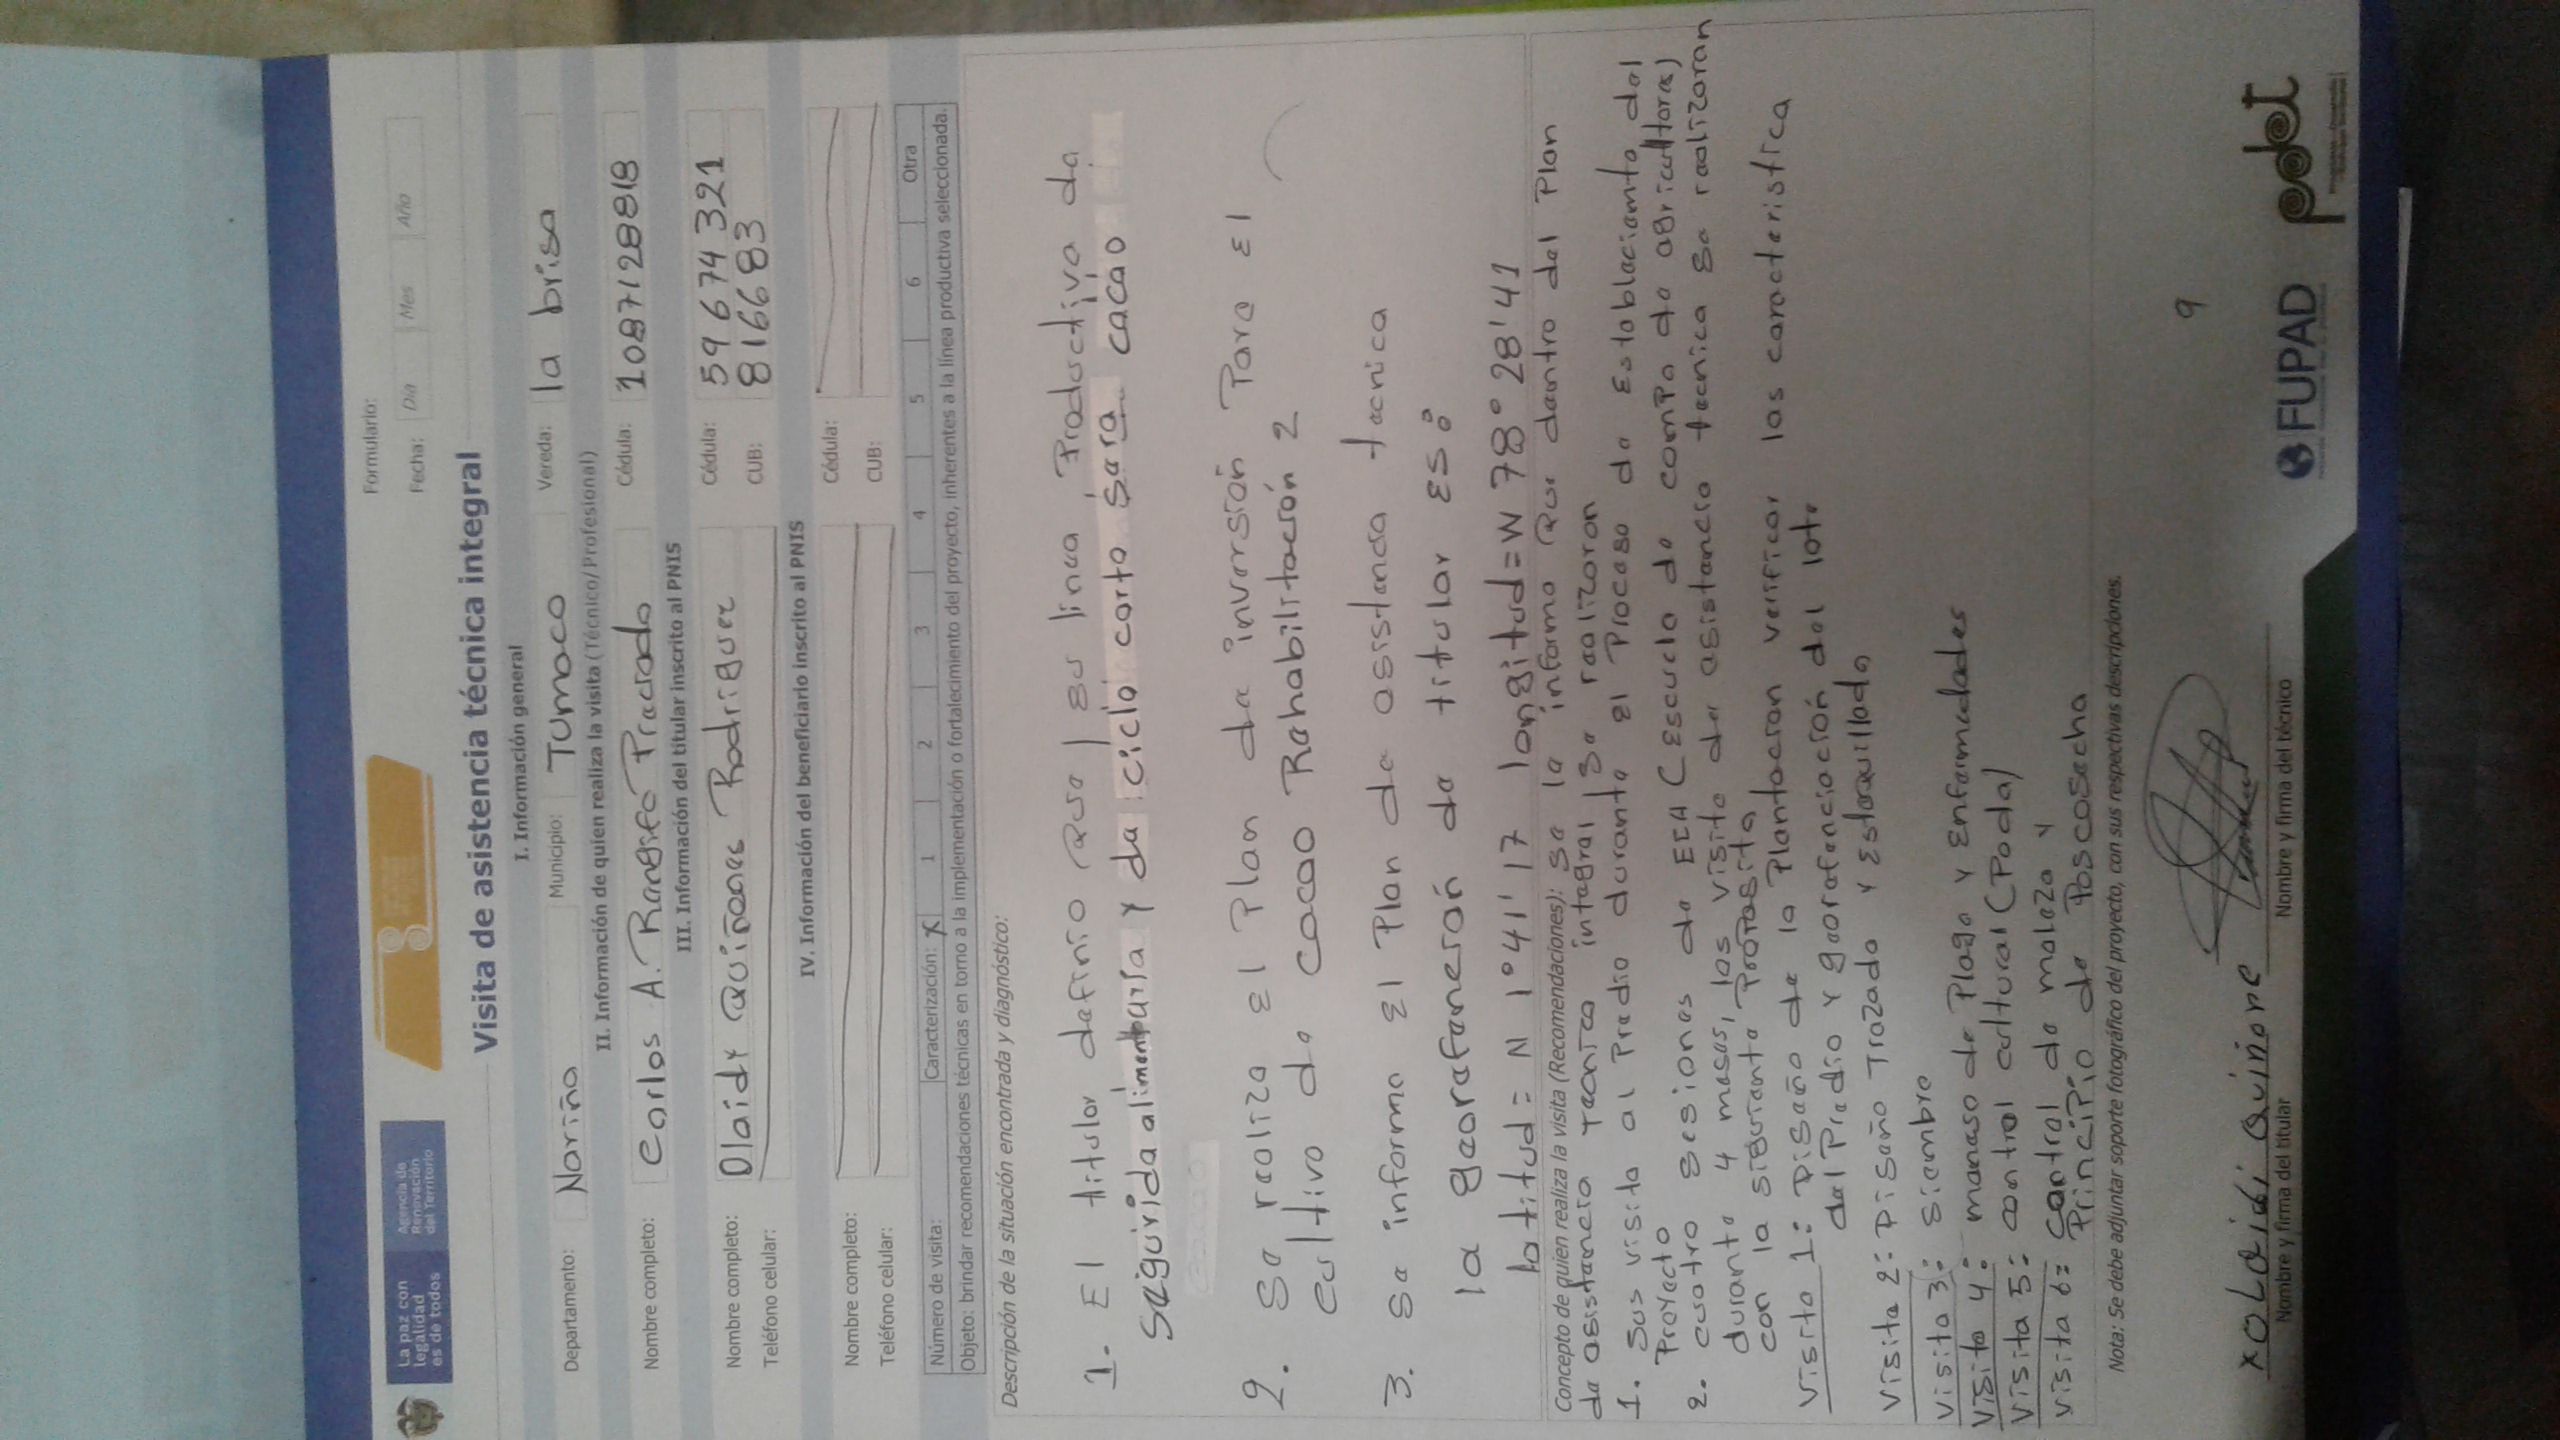 La paz con
legalidad
es de todos
Agencia de
Renovación
del Territorio
Formulario:
Fecha: Día Mes Año
Visita de asistencia técnica integral
I. Información general
Departamento: Nariño Municipio: Tumaco Vereda: la brisa
II. Información de quien realiza la visita (Técnico/Profesional)
Nombre completo: Carlos A. Rengifo Preciado Cédula: 1087128818
III. Información del titular inscrito al PNIS
Nombre completo: Olaidy Quiñones Rodriguez Cédula: 59674321
Teléfono celular: CUB: 8166683
IV. Información del beneficiario inscrito al PNIS
Nombre completo: Cédula:
Teléfono celular: CUB:
Número de visita: Caracterización: X 1 2 3 4 5 6 Otra
Objeto: brindar recomendaciones técnicas en torno a la implementación o fortalecimiento del proyecto, inherentes a la línea productiva seleccionada.
Descripción de la situación encontrada y diagnóstico:
1. El titular definio que su linea Productiva de
seguirida alimenturia y de ciclo corto sera cacao
2. Se realiza el Plan de inversión Para El
cultivo de cacao Rehabilitación 2
3. Se informa El Plan de asistencia tecnica
la georefereneción de titular ES:
latitud = N 1°41'17 longitud = W 78°28'41
Concepto de quien realiza la visita (Recomendaciones): Se le informa que dentro del Plan
de asistencia tecnica integral Se realizaron
1. Sus visita al Predio durante el Proceso de Establecimiento del
Proyecto
2. cuatro sesiones de ECA (Escuela de campo de agricultora)
durante 4 meses, las visita de asistencia tecnica se realizaran
con la siguiente Proposito
Visita 1: Diseño de la Plantacion verificar las caracteristica
del Predio y georefenciación del lote
Visita 2: Diseño Trazado y Estaquillado
Visita 3: siembra
Visita 4: maneso de Plaga y Enfermedades
Visita 5: control cultural (Poda)
Visita 6: control de maleza y
Principio de Poscosecha
Nota: Se debe adjuntar soporte fotográfico del proyecto, con sus respectivas descripciones.
x OLaidi Quiñone
Nombre y firma del titular Nombre y firma del técnico
9
FUPAD
pdet